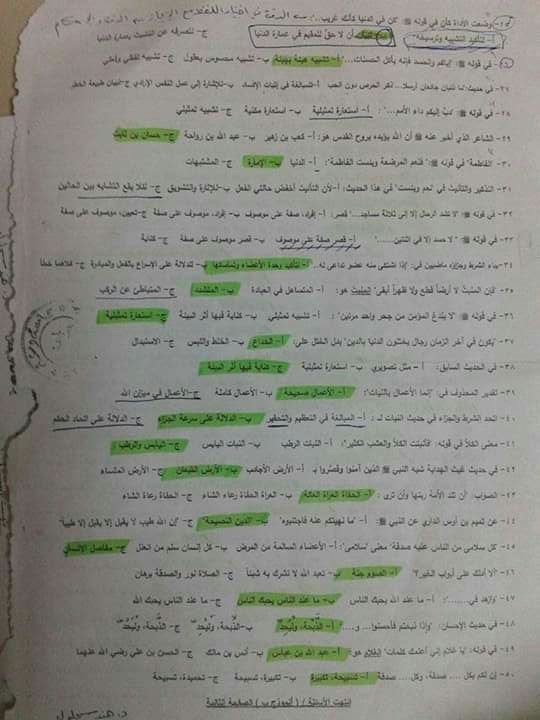 ٢٥- وضعت الأداة كأن في قوله ﷺ "كن في الدنيا كأنك غريب..":
أ- لتأكيد التشبيه وترسيخه ب- أن لا حق للمقيم في عمارة الدنيا ج- لصرفه عن التشبث بعمارة الدنيا
٢٦- في قوله ﷺ: "إياكم والحسد فإنه يأكل الحسنات..." أ- تشبيه هيئة بهيئة ب- تشبيه محسوس بمعقول ج- تشبيه لفظي وعقلي
٢٧- في حديث: "ما ذئبان جائعان أرسلا.. ذكر الحرص دون الحب أ- للمبالغة في إثبات الإفساد ب- للإشارة إلى عمل النفس الإرادي ج- لبيان طبيعة الخطر
٢٨- في قوله ﷺ: "دب إليكم داء الأمم...." أ- استعارة تمثيلية ب- استعارة مكنية ج- تشبيه تمثيلي
٢٩- الشاعر الذي أخبر عنه ﷺ أن الله يؤيده بروح القدس هو: أ- كعب بن زهير ب- عبد الله بن رواحة ج- حسان بن ثابت
٣٠- "الفاطمة" في قوله ﷺ "فنعم المرضعة وبئست الفاطمة": أ- الدنيا ب- الإمارة ج- المشتبهات
٣١- التذكير والتأنيث في "نعم وبئست" في هذا الحديث: أ- لأن التأنيث أخفض حالتي الفعل ب- للإثارة والتشويق ج- لئلا يقع التشابه بين الحالين
٣٢- في قوله ﷺ "لا تشد الرحال إلا إلى ثلاثة مساجد..." قصر: أ- إفراد، صفة على موصوف ب- إفراد، موصوف على صفة ج- تعيين، موصوف على صفة
٣٣- في قوله ﷺ "لا حسد إلا في اثنتين......" أ- قصر صفة على موصوف ب- قصر موصوف على صفة ج- كناية
٣٤- جاء الشرط وجزاؤه ماضيين في: إذا اشتكى منه عضو تداعى له.. أ- لتأكيد وحدة الأعضاء وتماسكها ب- للدلالة على الإسراع بالفعل والمبادرة ج- كلاهما خطأ
٣٥- "فإن المنبت لا أرضاً قطع ولا ظهراً أبقى" المنبت هو: أ- المتساهل في العبادة ب- المتشدد ج- المتباطئ عن الركب
٣٦- في قوله ﷺ "لا يلدغ المؤمن من جحر واحد مرتين" أ- تشبيه تمثيلي ب- كناية فيها أثر البيئة ج- استعارة تمثيلية
٣٧- "يكون في آخر الزمان رجال يختلون الدنيا بالدين" يدل الختل على: أ- الخداع ب- الخلط والتلبس ج- الاستبدال
٣٨- في الحديث السابق: أ- مثل تصويري ب- استعارة تمثيلية ج- كناية فيها أثر البيئة
٣٩- تقدير المحذوف في: "إنما الأعمال بالنيات": أ- الأعمال صحيحة ب- الأعمال كاملة ج- الأعمال في ميزان الله
٤٠- اتحد الشرط والجزاء في حديث النيات لـ: أ- المبالغة في التعظيم والتحقير ب- الدلالة على سرعة الجزاء ج- الدلالة على اتحاد الحكم
٤١- معنى الكلأ في قوله: فأنبتت الكلأ والعشب الكثير": أ- النبات الرطب ب- النبات اليابس ج- اليابس والرطب
٤٢- في حديث غيث الهداية شبه النبي ﷺ الذين آمنوا وقصّروا بـ أ- الأرض الأجادب ب- الأرض القيعان ج- الأرض الملساء
٤٣- الصواب: أن تلد الأمة ربتها وأن ترى: أ- الحفاة العراة العالة ب- العراة الحفاة رعاء الشاء ج- الحفاة رعاة الشاء
٤٤- عن تميم بن أوس الداري عن النبي ﷺ: أ- "ما نهيتكم عنه فاجتنبوه" ب- الدين النصيحة ج- "إن الله طيب لا يقبل إلا طيباً"
٤٥- كل سلامى من الناس عليه صدقة" معنى "سلامى": أ- الأعضاء السالمة من المرض ب- كل إنسان سلم من العلل ج- مفاصل الإنسان
٤٦- "ألا أدلك على أبواب الخير؟ أ- الصوم جنة ب- تعبد الله لا تشرك به شيئاً ج- الصلاة نور والصدقة برهان
٤٧- "وازهد في......": أ- ما عند الله يحبك الناس ب- ما عند الناس يحبك الناس ج- ما عند الناس يحبك الله
٤٨- في حديث الإحسان: "وإذا ذبحتم فأحسنوا... و...." أ- الذِّبحة، وليُحِدَّ ب- الذَّبحة، وليُحِد ج- الذبحة، وليحد
٤٩- في قوله: "يا غلام إني أعلمك كلمات" الغلام هو: أ- عبد الله بن عباس ب- أنس بن مالك ج- الحسن بن علي رضي الله عنهما
٥٠- إن لكم بكل .... صدقة، وكل.... صدقة أ- تسبيحة، تكبيرة ب- تكبيرة، تسبيحة ج- تحميدة، تسبيحة
انتهت الأسئلة / ( أنموذج ب ) الصفحة الثالثة